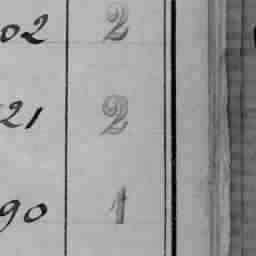 02 2
21 2
90 1